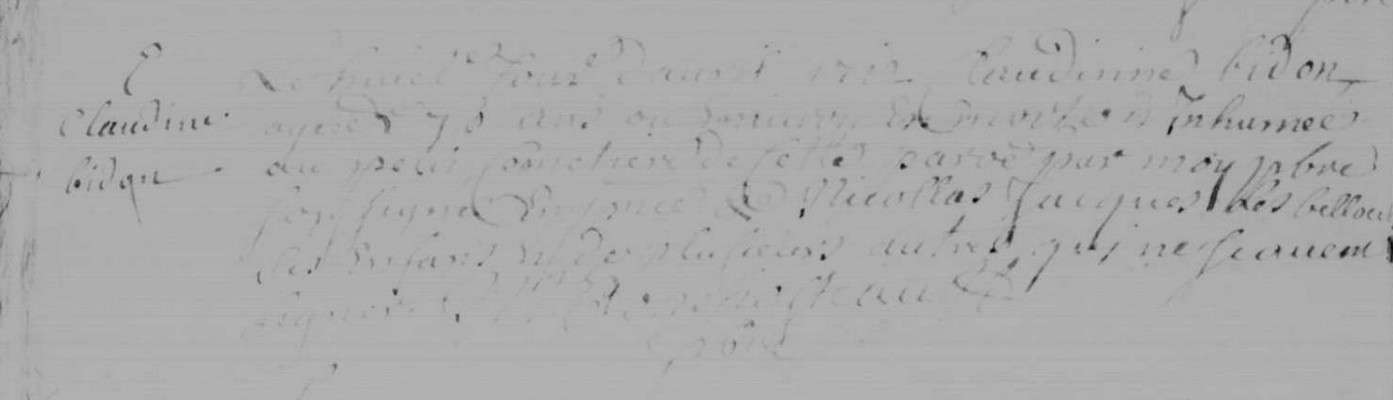 E
Claudine
bidon
Le huict Jour d'auril 1712 Claudinne bidon
agée d 78 ans ou Enuiron Est morte et Inhumee
au petit Cometiere de cette parroe par moy pbre
soussigné En pnce de Nicollas Jacques Les bellou
ses Enfans et de plusieurs autres qui ne scauent
signer
pbre